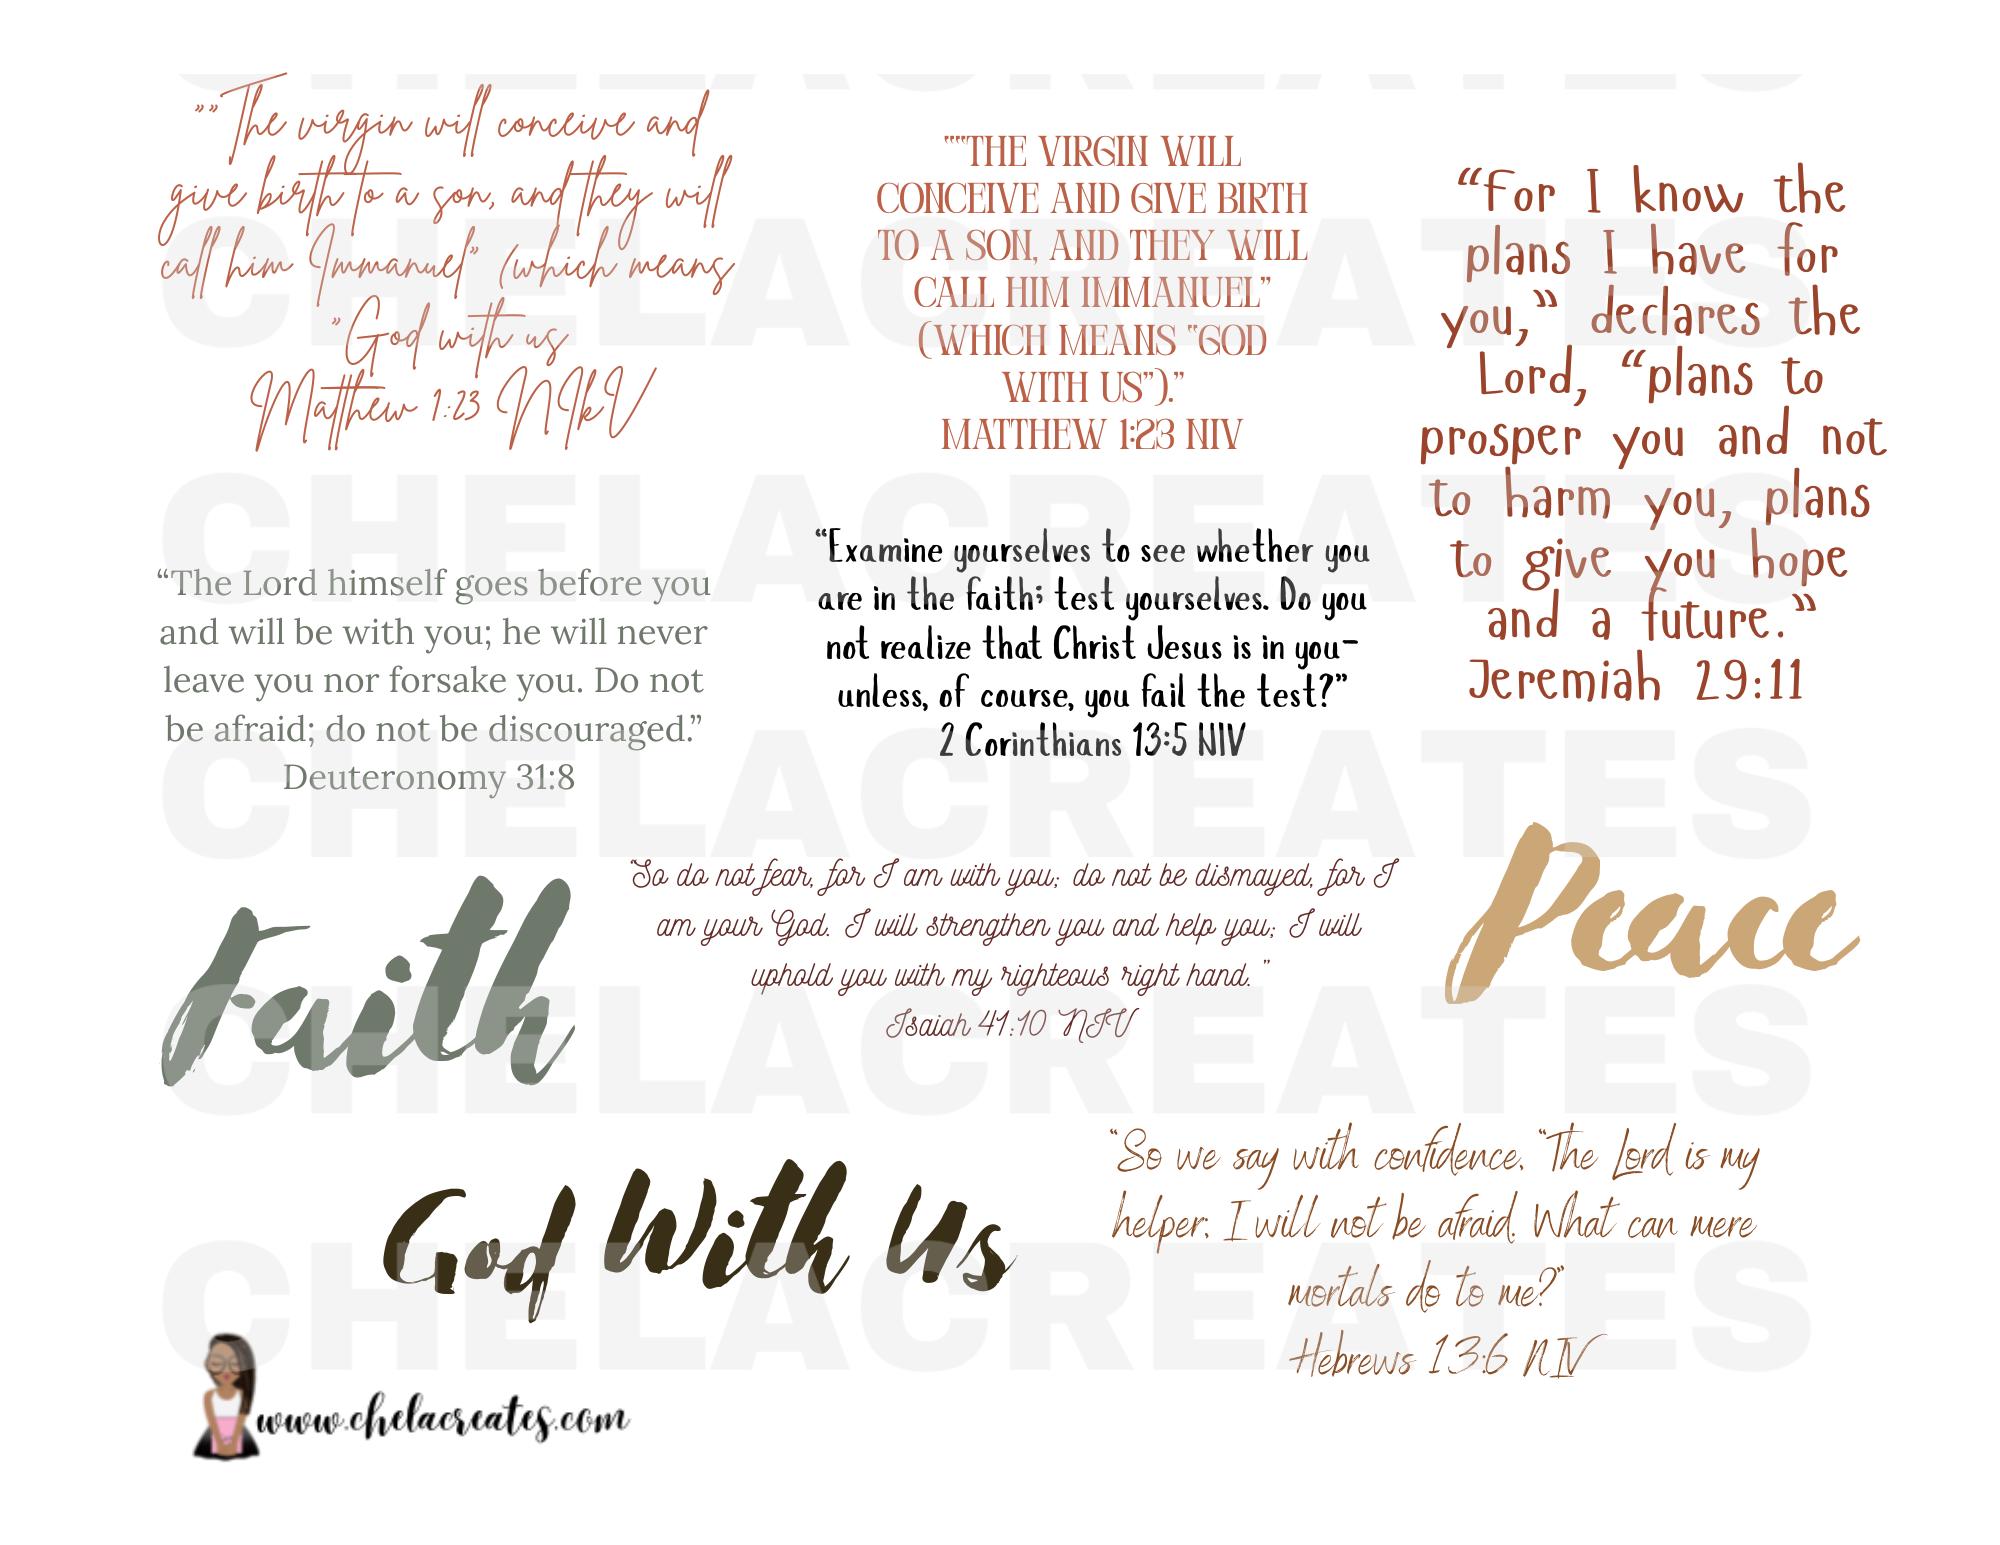 ””The virgin will conceive and
give birth to a son, and they will
call him Immanuel” (which means
”God with us
Matthew 1:23 NIkV
““THE VIRGIN WILL
CONCEIVE AND GIVE BIRTH
TO A SON, AND THEY WILL
CALL HIM IMMANUEL”
(WHICH MEANS “GOD
WITH US”).”
MATTHEW 1:23 NIV
“For I know the
plans I have for
you,” declares the
Lord, “plans to
prosper you and not
to harm you, plans
to give you hope
and a future.”
Jeremiah 29:11
“The Lord himself goes before you
and will be with you; he will never
leave you nor forsake you. Do not
be afraid; do not be discouraged.”
Deuteronomy 31:8
“Examine yourselves to see whether you
are in the faith; test yourselves. Do you
not realize that Christ Jesus is in you–
unless, of course, you fail the test?”
2 Corinthians 13:5 NIV
Faith
“So do not fear, for I am with you; do not be dismayed, for I
am your God. I will strengthen you and help you; I will
uphold you with my righteous right hand.”
Isaiah 41:10 NIV
Peace
God With Us
“So we say with confidence, “The Lord is my
helper; I will not be afraid. What can mere
mortals do to me?”
Hebrews 13:6 NIV
www.chelacreates.com
CHELACREATES
CHELACREATES
CHELACREATES
CHELACREATES
CHELACREATES
CHELACREATES